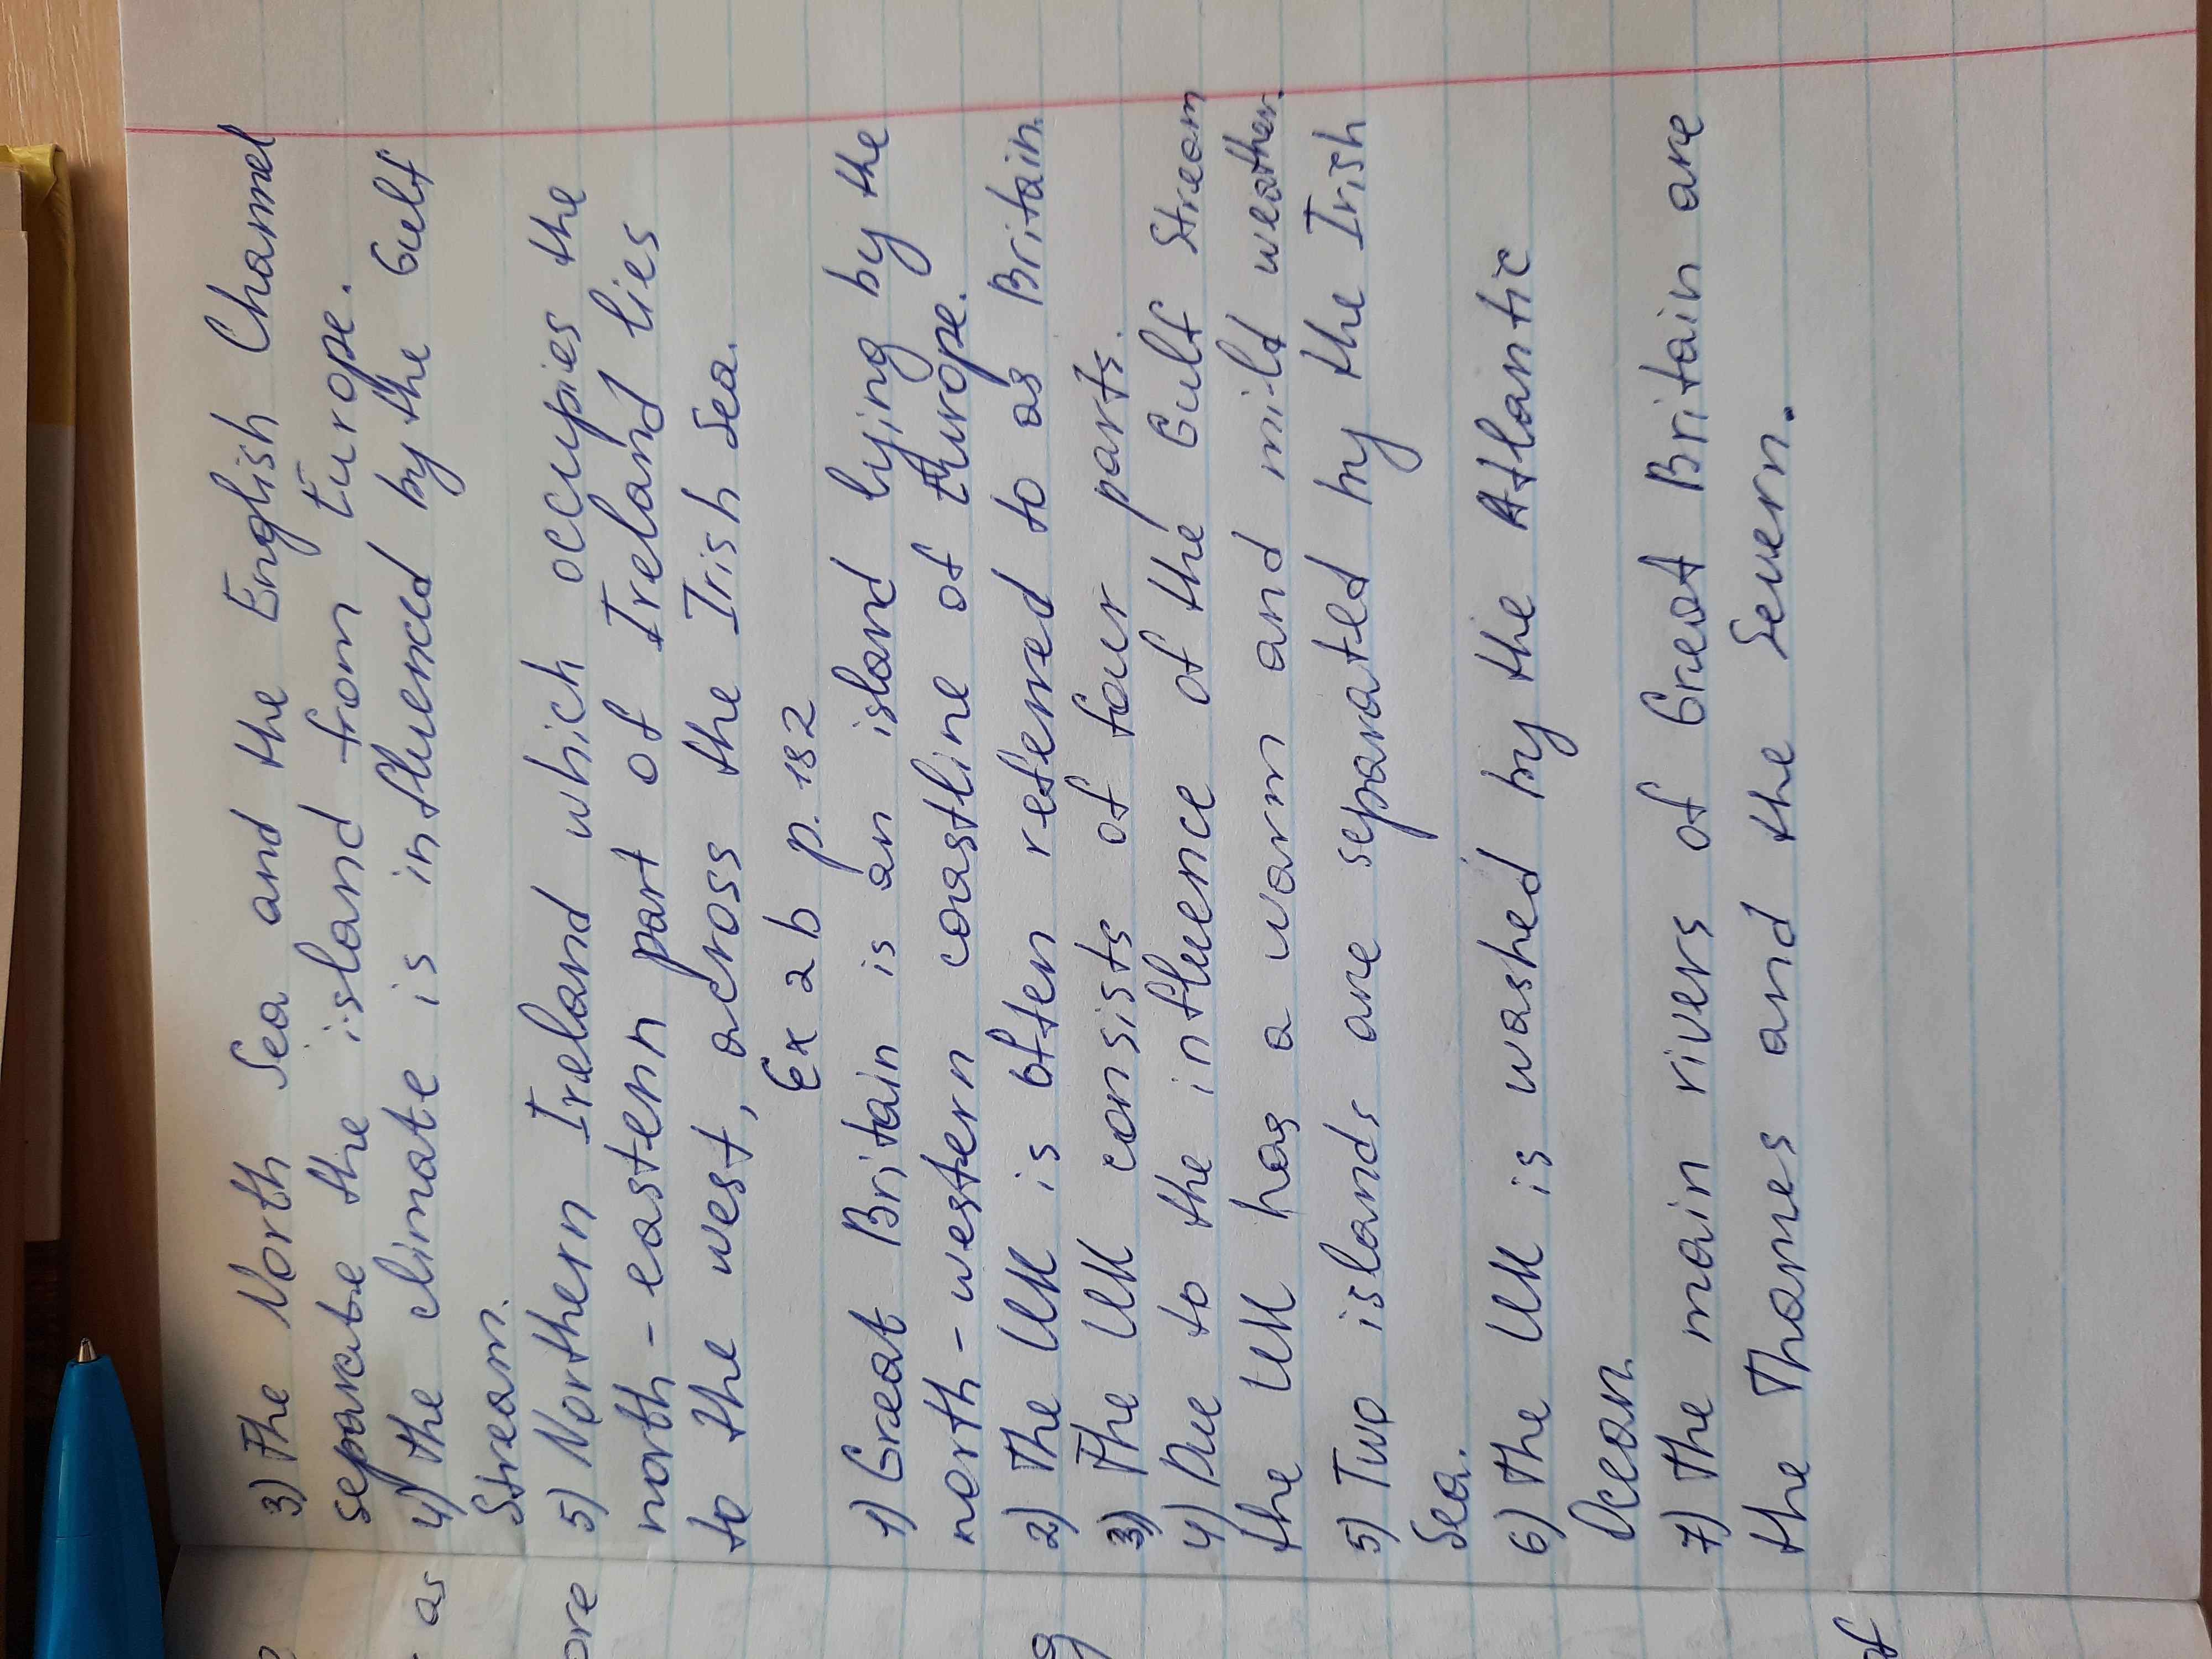 3) The North Sea and the English Channel
separate the island from Europe.
4) the climate is influenced by the Gulf
Stream.
5) Northern Ireland which occupies the
north-eastern part of Ireland lies
to the west, across the Irish Sea.
Ex 2 b p. 182
1) Great Britain is an island lying by the
north-western coastline of Europe.
2) The UK is often refered to as Britain.
3) The UK consists of four parts.
4) Due to the influence of the Gulf Stream
the UK has a warm and mild weather.
5) Two islands are separated by the Irish
Sea.
6) The UK is washed by the Atlantic
Ocean.
7) The main rivers of Great Britain are
the Thames and the Severn.
as
ore
g
of